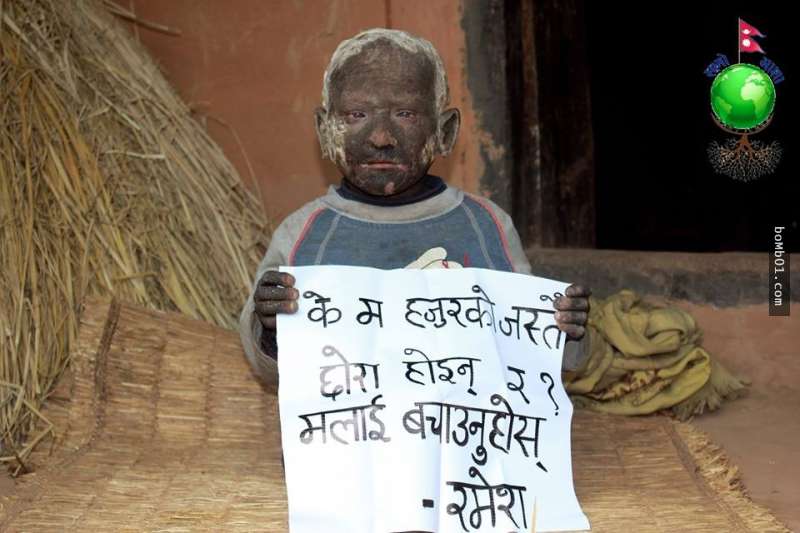 के म हजुरको जस्तै
छोरा होइन् र?
मलाई बचाउनुहोस्
- रमेश
bomb01.com